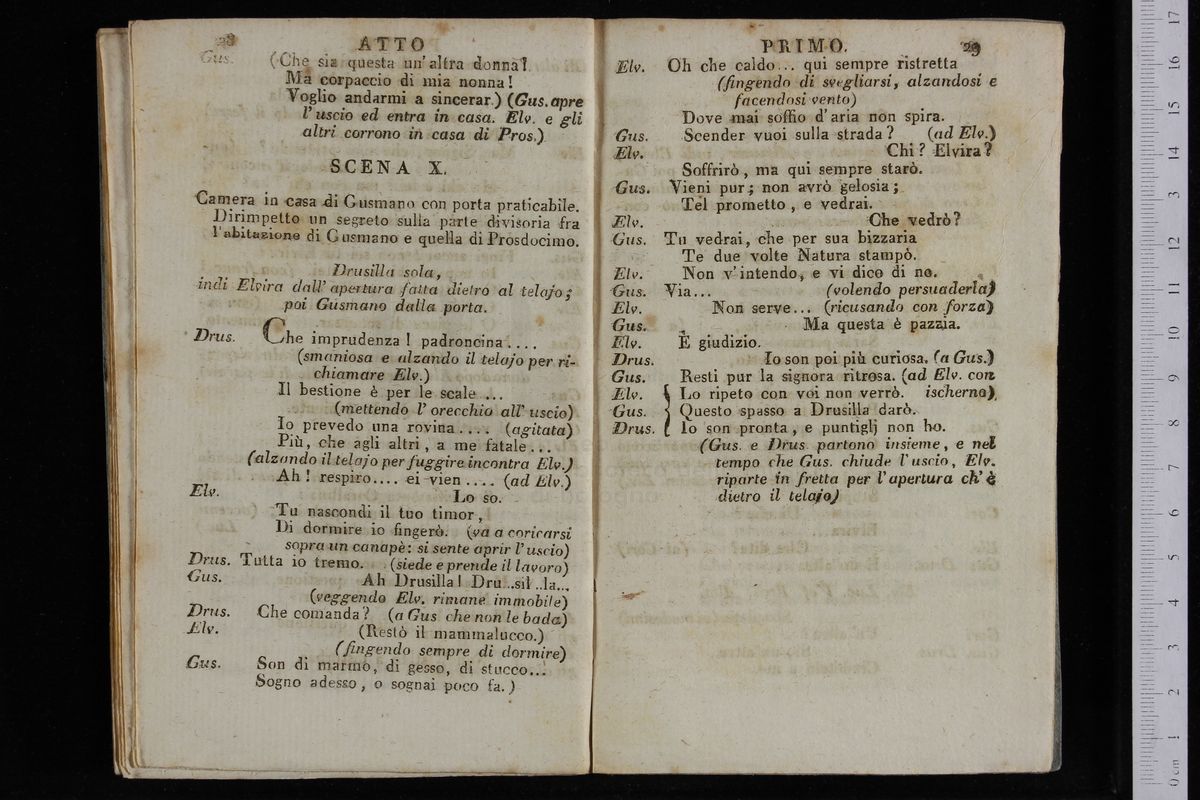 28 ATTO
Gus. (Che sia questa un' altra donna?
Ma corpaccio di mia nonna!
Voglio andarmi a sincerar.) (Gus. apre
l' uscio ed entra in casa. Elv. e gli
altri corrono in casa di Pros.)
SCENA X.
Camera in casa di Gusmano con porta praticabile.
Dirimpetto un segreto sulla parte divisoria fra
l'abitazione di Gusmano e quella di Prosdocimo.
Drusilla sola,
indi Elvira dall' apertura fatta dietro al telajo;
poi Gusmano dalla porta.
Drus. Che imprudenza! padroncina....
(smaniosa e alzando il telajo per ri-
chiamare Elv.)
Il bestione è per le scale ...
(mettendo l' orecchio all' uscio)
Io prevedo una rovina.... (agitata)
Più, che agli altri, a me fatale...
(alzando il telajo per fuggire incontra Elv.)
Ah! respiro.... ei vien.... (ad Elv.)
Elv. Lo so.
Tu nascondi il tuo timor,
Di dormire io fingerò. (va a coricarsi
sopra un canapè: si sente aprir l' uscio)
Drus. Tutta io tremo. (siede e prende il lavoro)
Gus. Ah Drusilla! Dru..sil..la...
(veggendo Elv. rimane immobile)
Drus. Che comanda? (a Gus che non le bada)
Elv. (Restò il mammalucco.)
(fingendo sempre di dormire)
Gus. Son di marmo, di gesso, di stucco...
Sogno adesso, o sognai poco fa.)
PRIMO. 29
Elv. Oh che caldo... qui sempre ristretta
(fingendo di svegliarsi, alzandosi e
facendosi vento)
Dove mai soffio d' aria non spira.
Gus. Scender vuoi sulla strada? (ad Elv.)
Elv. Chi? Elvira?
Soffrirò, ma qui sempre starò.
Gus. Vieni pur; non avrò gelosia;
Tel prometto, e vedrai.
Elv. Che vedrò?
Gus. Tu vedrai, che per sua bizzaria
Te due volte Natura stampò.
Elv. Non v' intendo, e vi dico di no.
Gus. Via... (volendo persuaderla)
Elv. Non serve... (ricusando con forza)
Gus. Ma questa è pazzia.
Elv. È giudizio.
Drus. Io son poi più curiosa. (a Gus.)
Gus. Resti pur la signora ritrosa. (ad Elv. con
Elv. Lo ripeto con voi non verrò. ischerno)
Gus. Questo spasso a Drusilla darò.
Drus. Io son pronta, e puntiglj non ho.
(Gus. e Drus. partono insieme, e nel
tempo che Gus. chiude l'uscio, Elv.
riparte in fretta per l'apertura ch' è
dietro il telajo)
0 cm 1 2 3 4 5 6 7 8 9 10 11 12 13 14 15 16 17